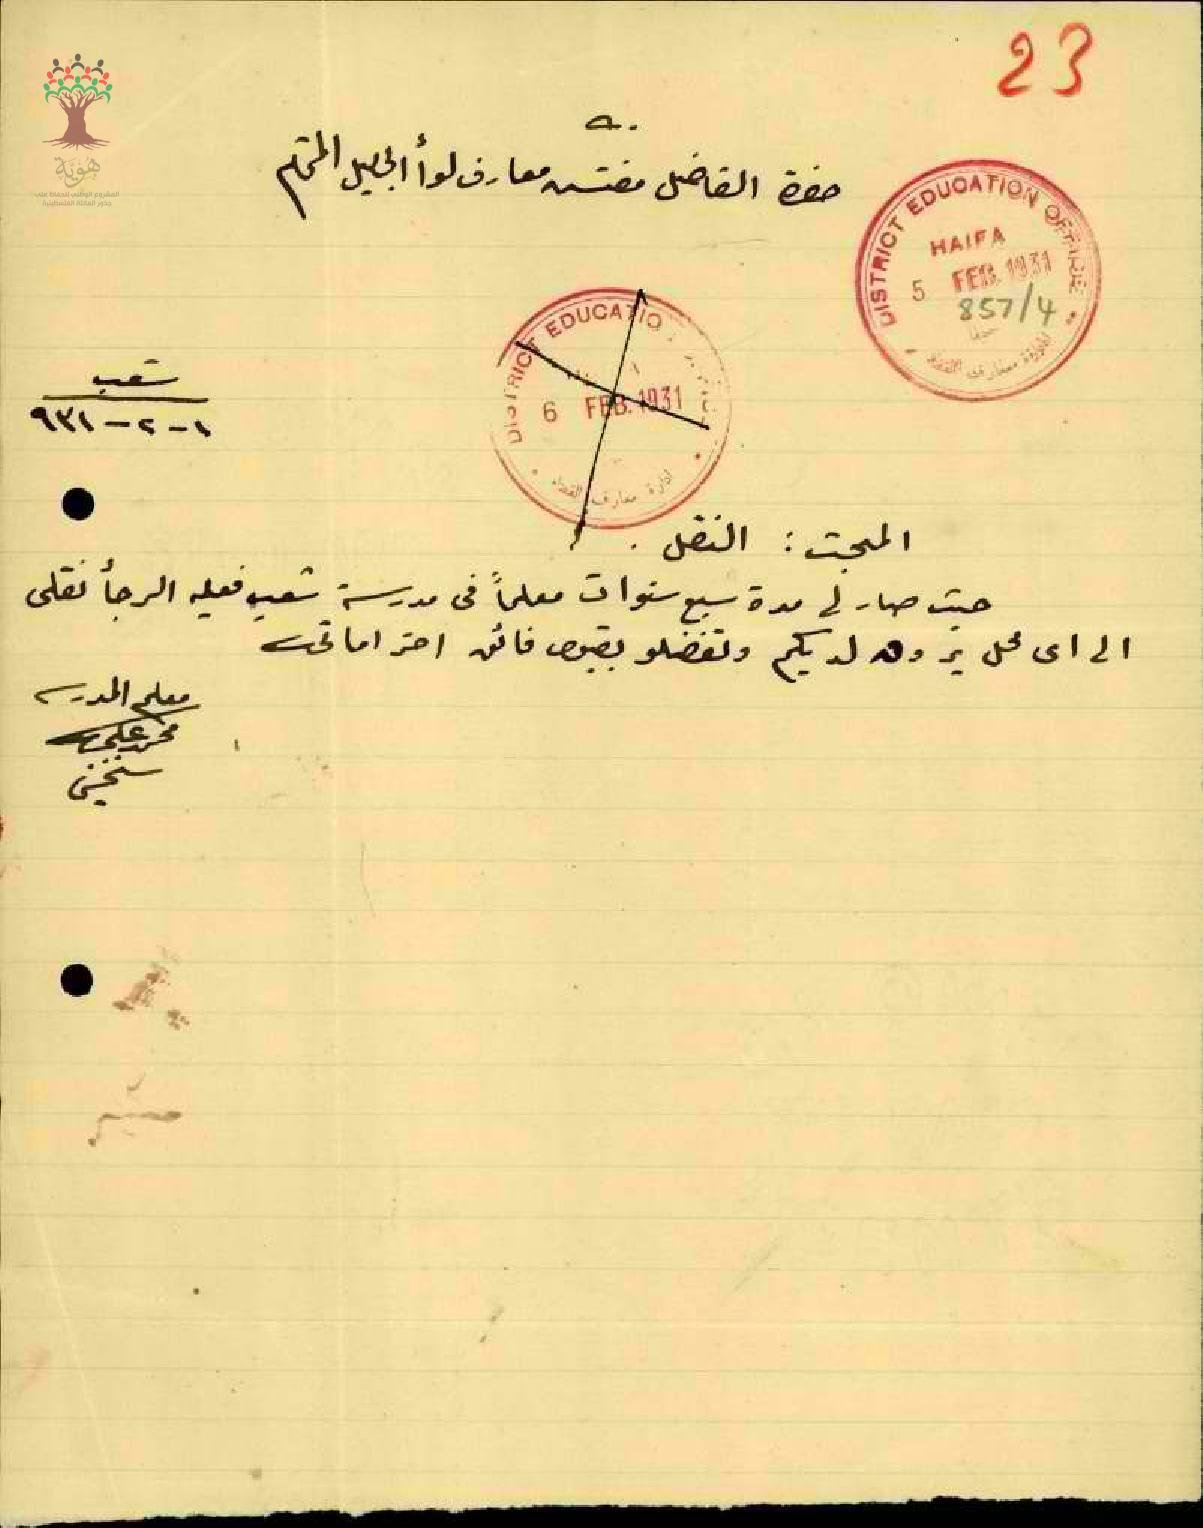 23
هُوِيَّة
المشروع الوطني للحفاظ على
جذور العائلة الفلسطينية
حضرة الفاضل مفتش معارف لوأ الجليل المحترم
DISTRICT EDUCATION OFFICE
HAIFA
5 FEB. 1931
857/4
حيفا
ادارة معارف القضاء
DISTRICT EDUCATIO
6 FEB. 1931
ادارة معارف القضاء
شعب
١-٢-٩٣١
المبحث: النقل.
حيث صار لي مدة سبع سنوات معلماً في مدرسة شعب فعليه الرجأ نقلى
الى اى محل يروه لديكم وتفضلو بقبول فائق احتراماتى
معلم المدرسه
محمد علي